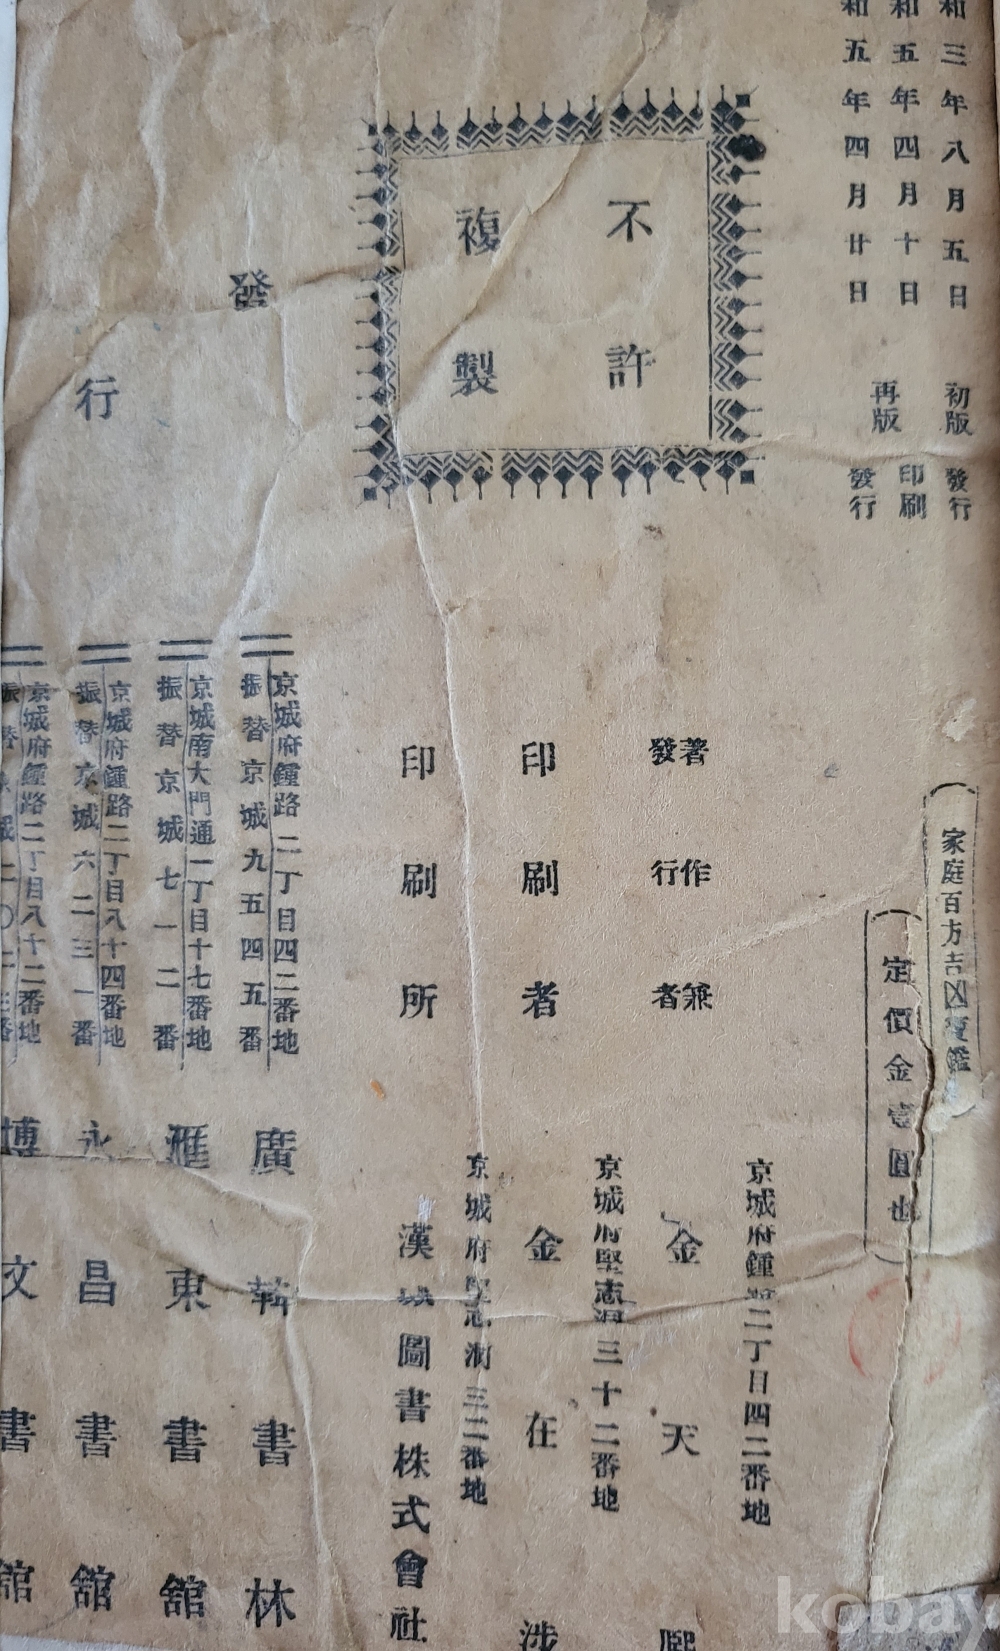 和三年八月五日 初版 發行
和五年四月十日 印刷
和五年四月廿日 再版 發行
不許
複製
家庭百方吉凶寶鑑
定價金壹圓也
京城府鍾路二丁目四二番地
著作兼
發行者
金天熙
京城府堅志洞三十二番地
印刷者
金在涉
京城府堅志洞三二番地
印刷所
漢城圖書株式會社
發行
京城府鍾路二丁目四二番地
振替京城九五四五番
廣韓書林
京城南大門通一丁目十七番地
振替京城七一二番
滙東書舘
京城府鍾路二丁目八十四番地
振替京城六二三一番
永昌書舘
京城府鍾路二丁目八十二番地
振替京城二〇二三番
博文書舘
kobay